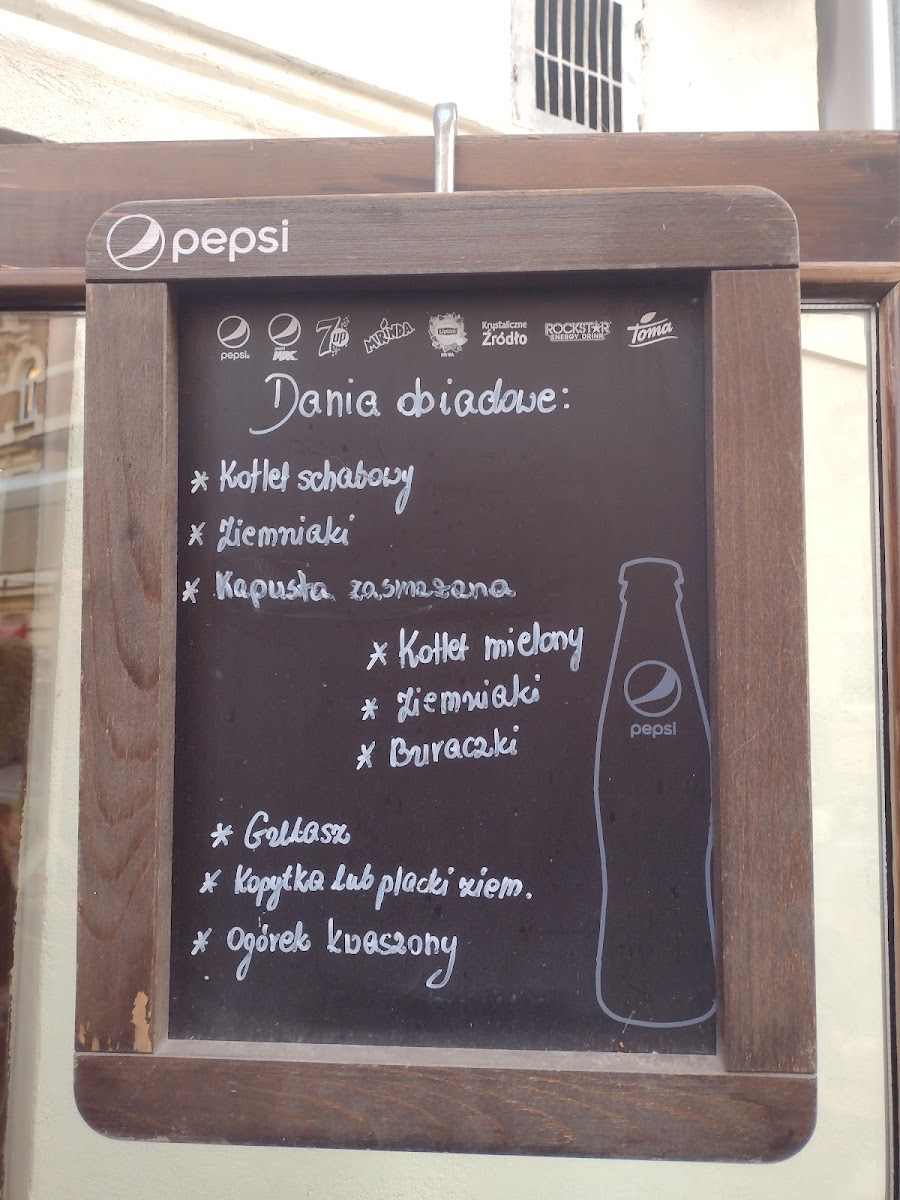 pepsi
pepsi
pepsi MAX
7UP
MIRINDA
Lipton
ICE TEA
Krystaliczne Źródło
ROCKSTAR ENERGY DRINK
Toma
Dania obiadowe:
* Kotlet schabowy
* Ziemniaki
* Kapusta zasmażana
* Kotlet mielony
* Ziemniaki
* Buraczki
pepsi
* Gulasz
* Kopytka lub placki ziem.
* Ogórek kwaszony